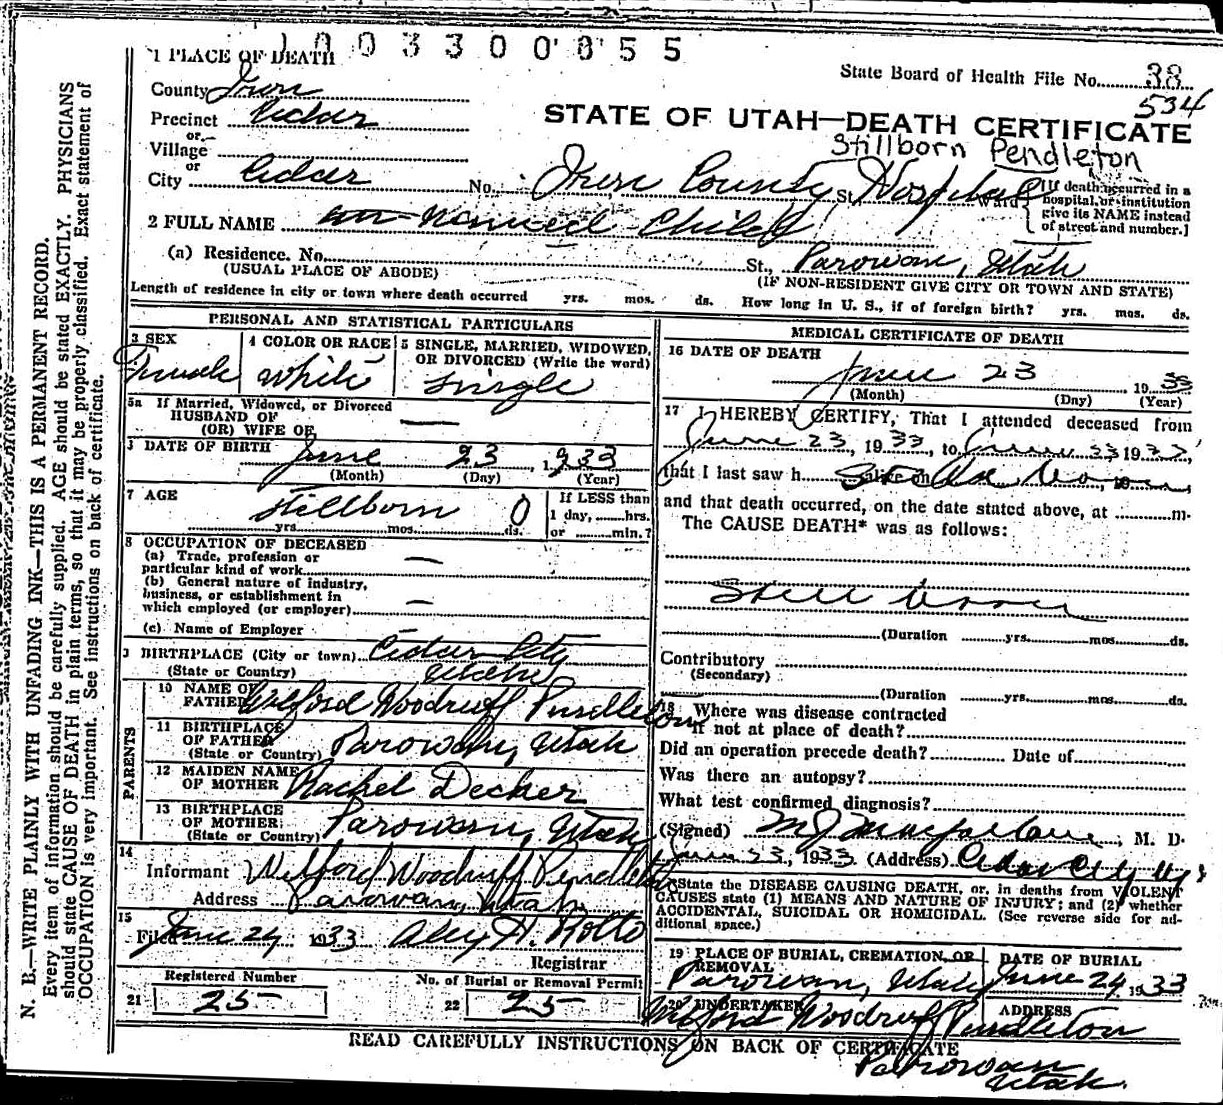 1003300055
1 PLACE OF DEATH
State Board of Health File No. 38
County Iron
534
Precinct Cedar
STATE OF UTAH—DEATH CERTIFICATE
or
Stillborn Pendleton
Village
or
City Cedar No. Iron County St. Hospital Ward
[If death occurred in a hospital or institution give its NAME instead of street and number.]
2 FULL NAME un-named Child
(a) Residence. No. St., Parowan, Utah
(USUAL PLACE OF ABODE) (IF NON-RESIDENT GIVE CITY OR TOWN AND STATE)
Length of residence in city or town where death occurred yrs. mos. ds. How long in U. S., if of foreign birth? yrs. mos. ds.
PERSONAL AND STATISTICAL PARTICULARS
3 SEX
Female
4 COLOR OR RACE
White
5 SINGLE, MARRIED, WIDOWED,
OR DIVORCED (Write the word)
Single
5a If Married, Widowed, or Divorced
HUSBAND OF
(OR) WIFE OF —
DATE OF BIRTH June 23, 1933
(Month) (Day) (Year)
7 AGE
Stillborn 0
yrs. mos. ds.
If LESS than
1 day, hrs.
or min.?
8 OCCUPATION OF DECEASED
(a) Trade, profession or
particular kind of work —
(b) General nature of industry,
business, or establishment in
which employed (or employer) —
(c) Name of Employer
BIRTHPLACE (City or town) Cedar City
(State or Country) Utah
PARENTS
10 NAME OF
FATHER Wilford Woodruff Pendleton
11 BIRTHPLACE
OF FATHER
(State or Country) Parowan, Utah
12 MAIDEN NAME
OF MOTHER Rachel Decker
13 BIRTHPLACE
OF MOTHER
(State or Country) Parowan, Utah
14
Informant Wilford Woodruff Pendleton
Address Parowan, Utah
15
Filed June 24 1933
Registrar
Registered Number
21 25
No. of Burial or Removal Permit
22 25
MEDICAL CERTIFICATE OF DEATH
16 DATE OF DEATH
June 23 1933
(Month) (Day) (Year)
17 I HEREBY CERTIFY, That I attended deceased from
June 23, 1933, to June 23 1933,
that I last saw h alive on Still born, 19
and that death occurred, on the date stated above, at m.
The CAUSE DEATH* was as follows:
Still born
(Duration yrs. mos. ds.
Contributory
(Secondary)
(Duration yrs. mos. ds.
18 Where was disease contracted
if not at place of death?
Did an operation precede death? Date of
Was there an autopsy?
What test confirmed diagnosis?
(Signed) M J Macfarlane, M. D.
June 23, 1933 (Address) Cedar City Ut
*State the DISEASE CAUSING DEATH, or, in deaths from VIOLENT
CAUSES state (1) MEANS AND NATURE OF INJURY; and (2) whether
ACCIDENTAL, SUICIDAL OR HOMICIDAL. (See reverse side for ad-
ditional space.)
19 PLACE OF BURIAL, CREMATION, OR
REMOVAL
Parowan, Utah
DATE OF BURIAL
June 24 1933
20 UNDERTAKER
Wilford Woodruff Pendleton
ADDRESS
Parowan
Utah.
READ CAREFULLY INSTRUCTIONS ON BACK OF CERTIFICATE
N. B.—WRITE PLAINLY WITH UNFADING INK—THIS IS A PERMANENT RECORD.
Every item of information should be carefully supplied. AGE should be stated EXACTLY. PHYSICIANS
should state CAUSE OF DEATH in plain terms, so that it may be properly classified. Exact statement of
OCCUPATION is very important. See instructions on back of certificate.